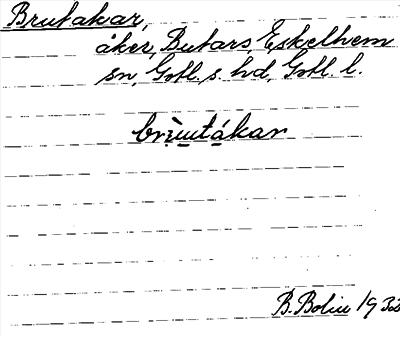 Brutakar,
åker, Butars, Eskelhem
sn, Gotl. s. hd, Gotl. l.
brùutákar
B. Bolin 19